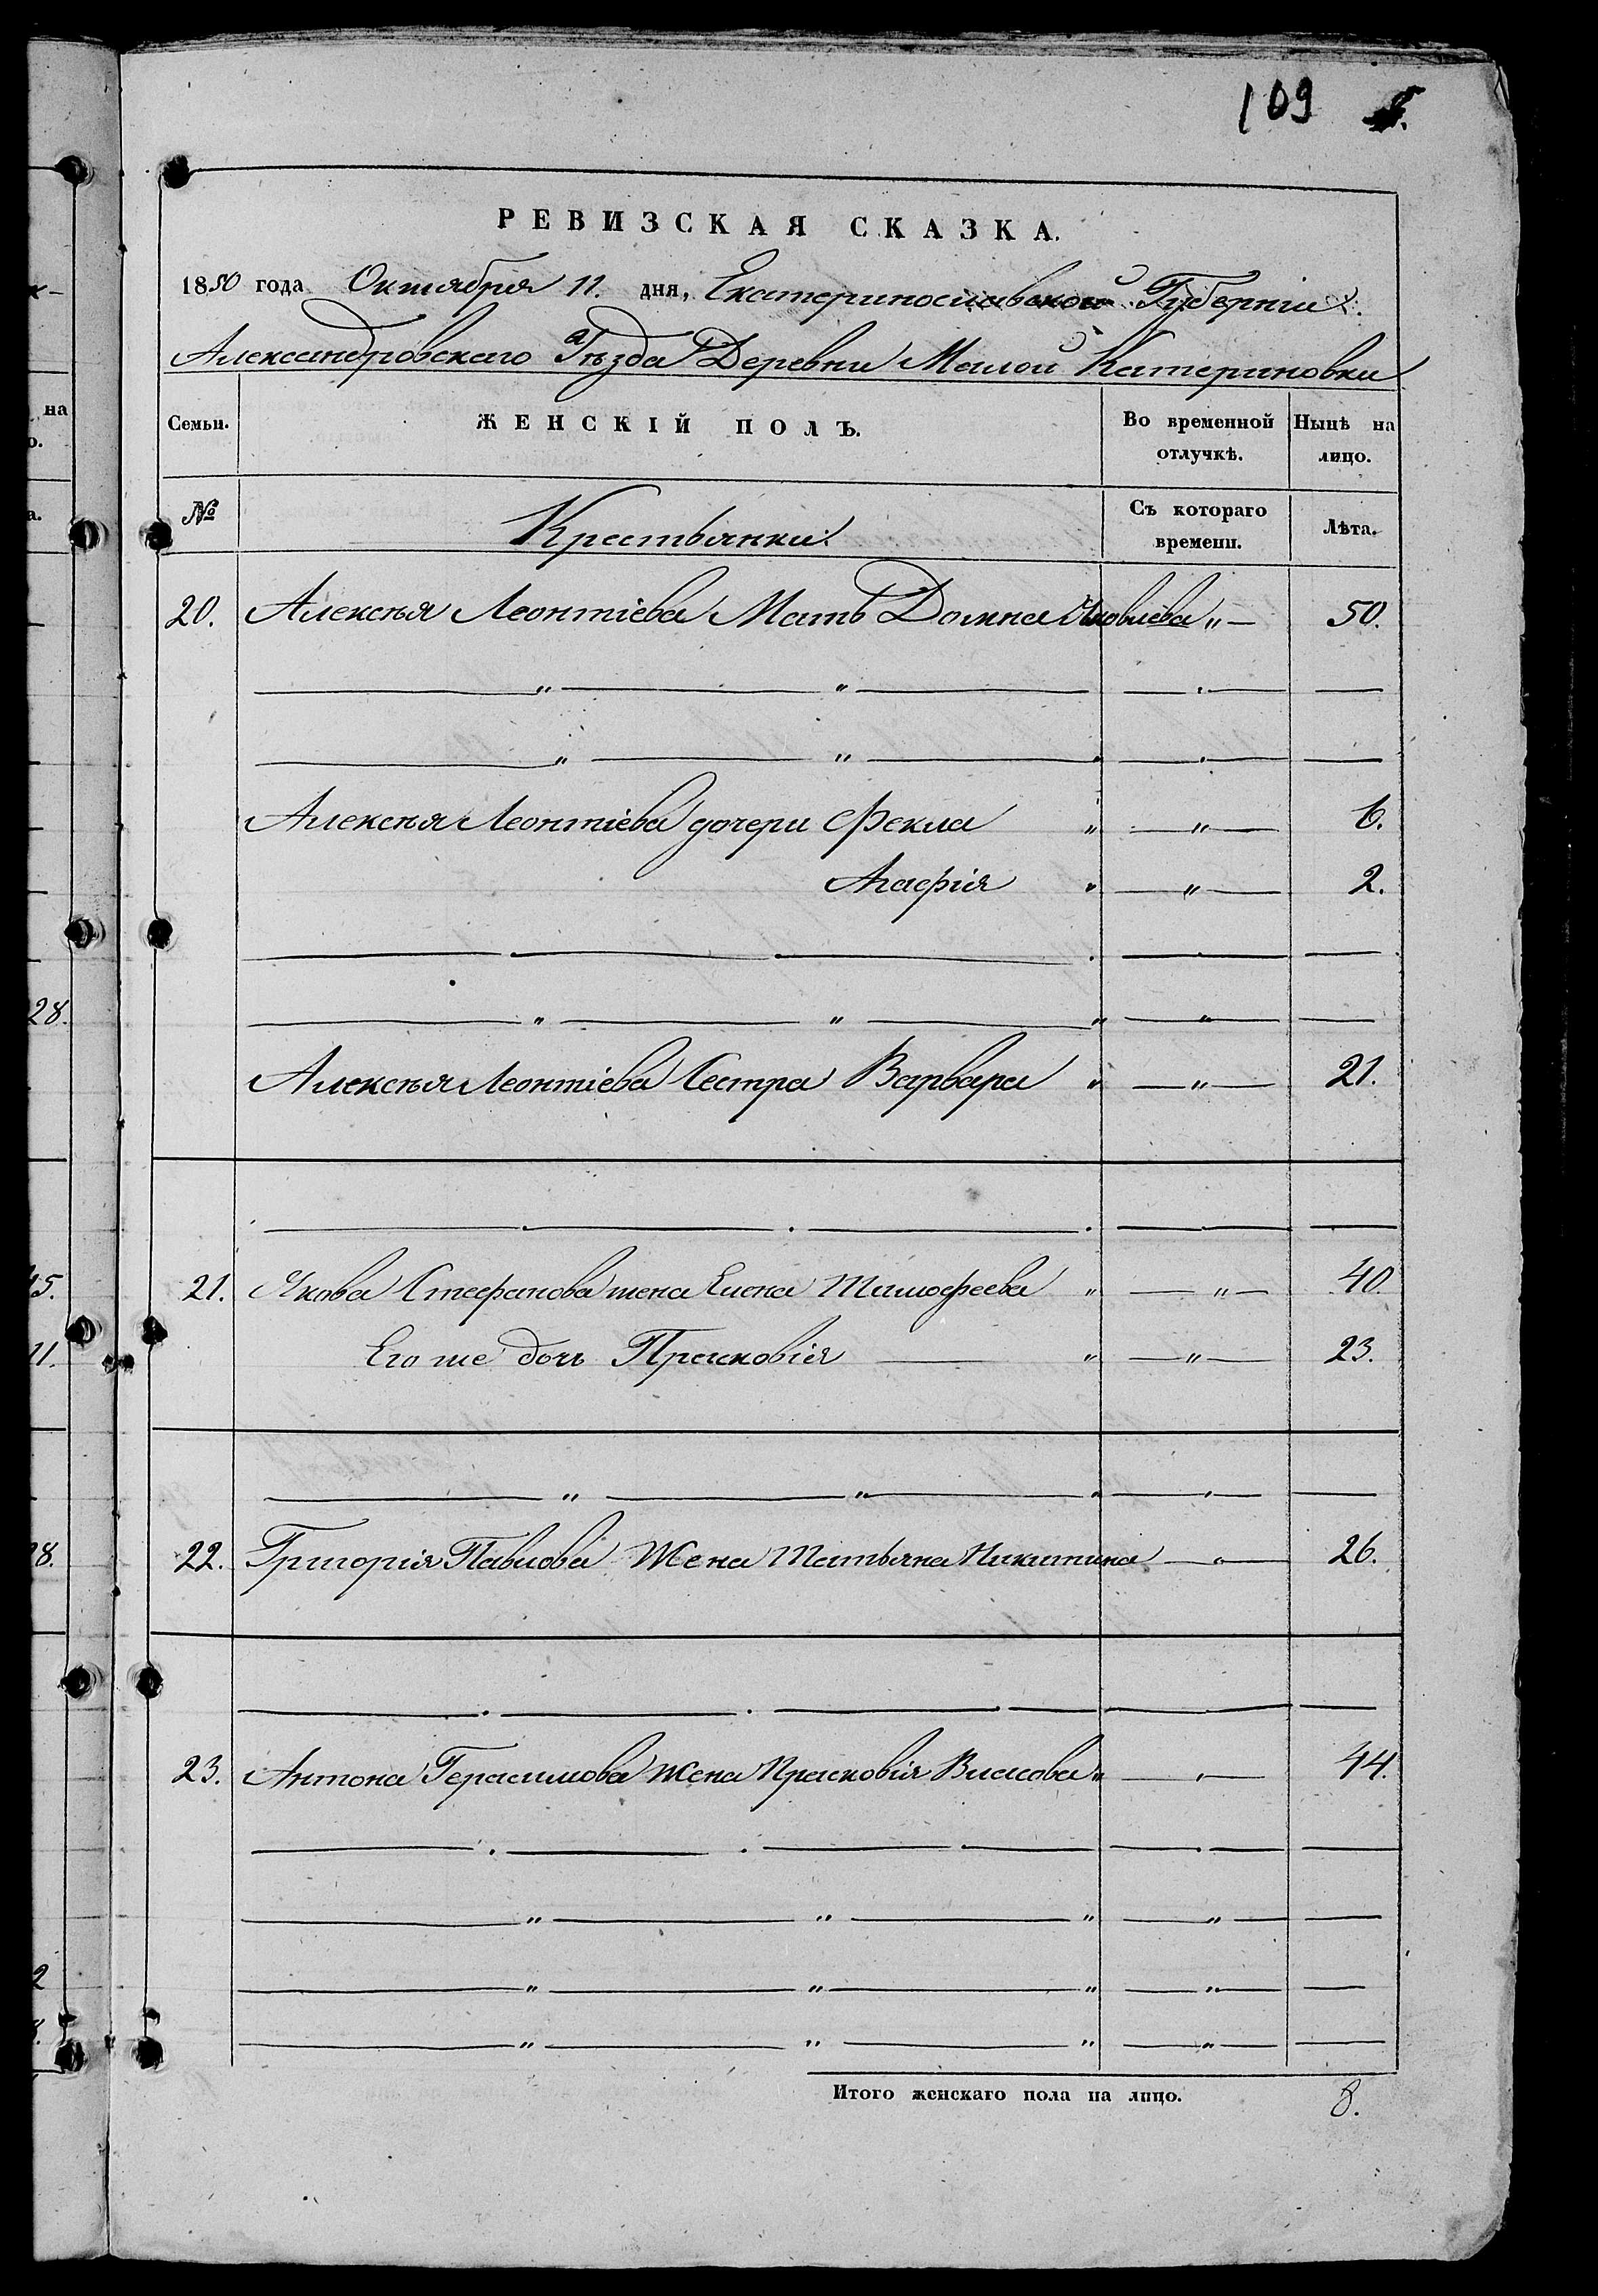 109
РЕВИЗСКАЯ СКАЗКА.
1850 года Октября 11. дня, Екатеринославской Губерніи.
Александровскаго Уѣзда Деревни Малой Катериновки
Семьи. ЖЕНСКІЙ ПОЛЪ. Во временной отлучкѣ. Нынѣ на лицо.
№ Крестьянки. Съ котораго времени. Лѣта.
20. Алексѣя Леонтіева Мать Домна Яковлева „ — 50.
Алексѣя Леонтіева дочери Фекла „ — „ — 6.
Агафія „ — „ — 2.
Алексѣя Леонтіева Сестра Варвара „ — „ — 21.
21. Якова Стефанова жена Елена Тимофеева „ — „ — 40.
Его же дочь Прасковія — „ — „ — 23.
22. Григорія Павлова Жена Татьяна Никитина — „ — 26.
23. Антона Герасимова жена Прасковія Власова „ — „ — 44.
Итого женскаго пола на лицо. 8.
на
о.
а.
28.
45.
11.
28.
2